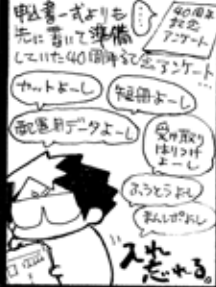 申込書一式よりも
先に書いて準備
していた40周年記念アンケート…
40周年
記念
アンケート
カットよーし
短冊よーし
配置用データよーし
受け取り
はりつけ
よーし
ふうとうよし
まんレポよし
入れ
忘れる。